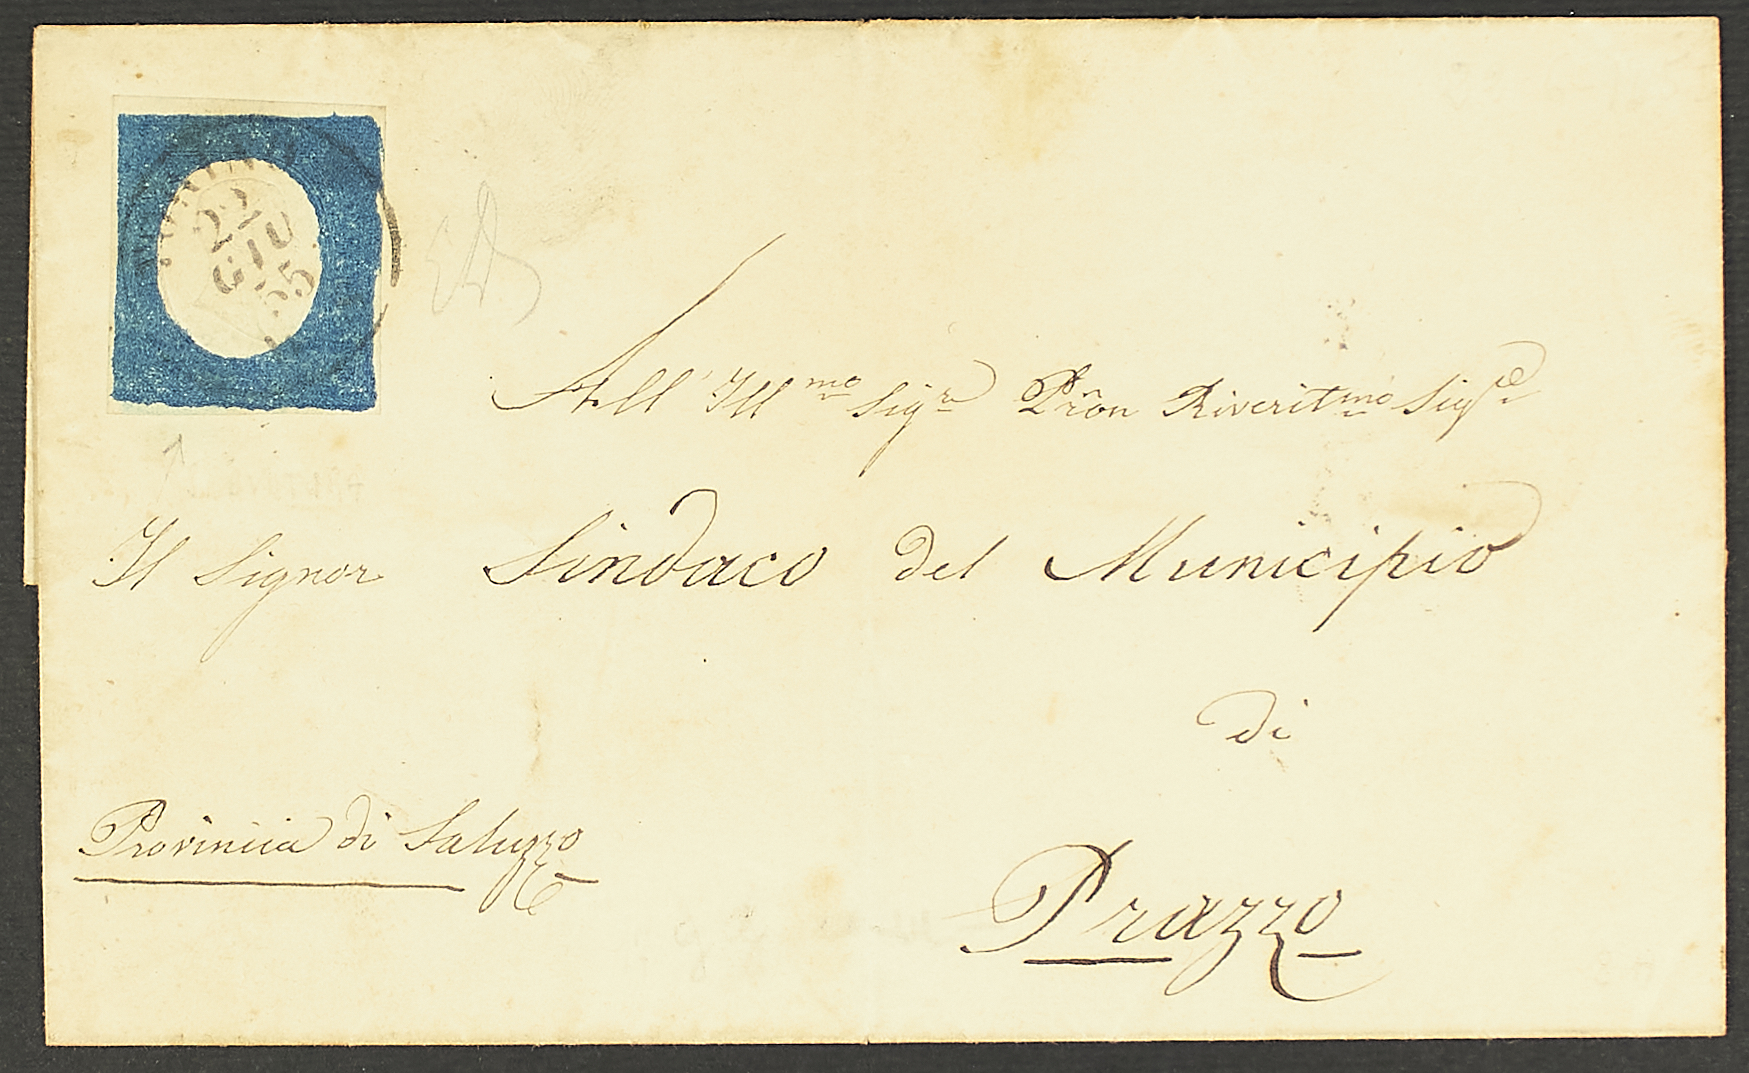 TORINO
22
GIU
55
All' Ill.mo Sig.r Prôn Riverit.mo Sig.re
Il Signor Sindaco del Municipio
di
Provincia di Saluzzo
Prazzo